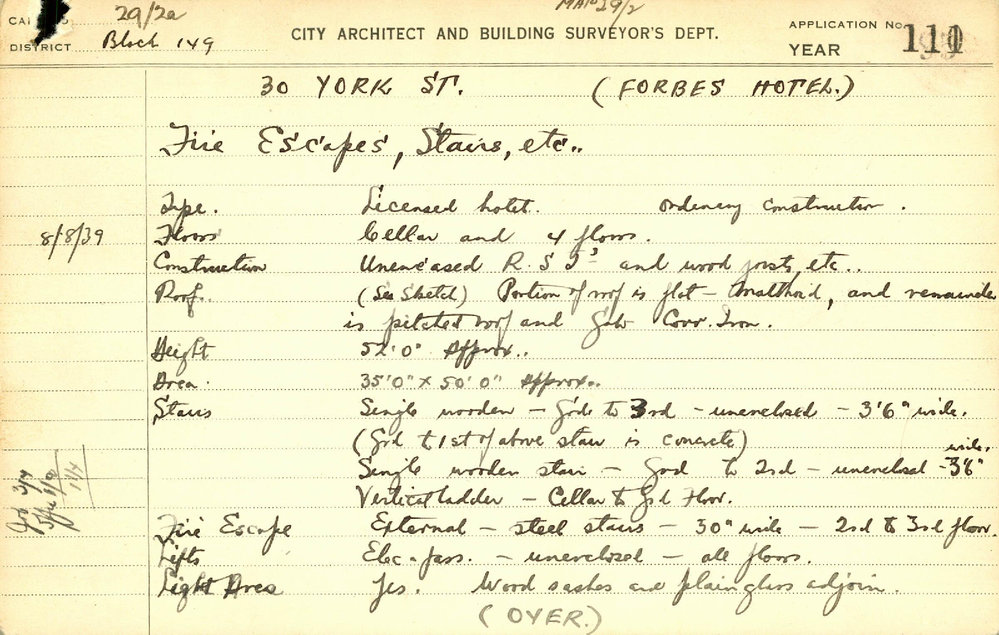 29/2a
MAP 29/2
DISTRICT Block 149
CITY ARCHITECT AND BUILDING SURVEYOR'S DEPT.
APPLICATION No
YEAR
30 YORK ST. (FORBES HOTEL.)
Fire Escapes, Stairs, etc..
Type. Licensed hotel. Ordinary construction.
8/8/39 Floors Cellar and 4 floors.
Construction Unencased R.S.J's and wood joists, etc..
Roof. (See Sketch) Portion of roof is flat - Malthoid, and remainder
is pitched roof and Galv Corr. Iron.
Height 52'0" Approx..
Area. 35'0" x 50'0" Approx..
Stairs Single wooden - Grd to 3rd - unenclosed - 3'6" wide.
(Grd to 1st of above stair is concrete)
Single wooden stair - Grd to 2nd - unenclosed - 3'6" wide.
Vertical ladder - Cellar to Grd Floor.
Fire Escape External - steel stairs - 30" wide - 2nd to 3rd floor.
Lifts Elec-pass. - unenclosed - all floors.
Light Area Yes. Wood sashes and plain glass adjoin.
(OVER.)